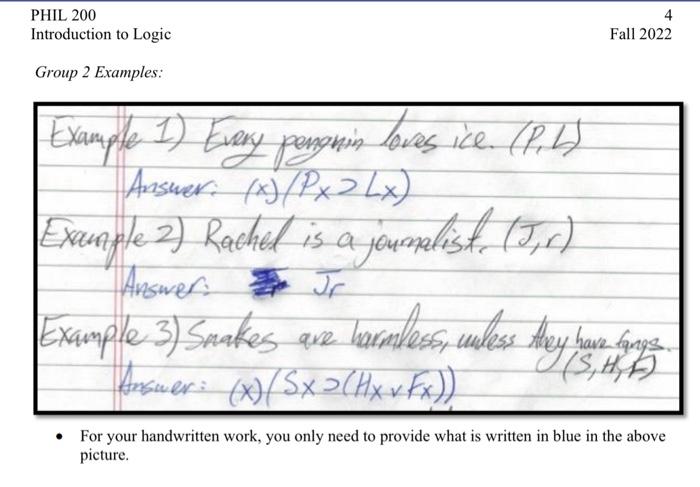 PHIL 200
4
Introduction to Logic
Fall 2022
Group 2 Examples:
Example 1) Every penguin loves ice. (P, L)
Answer: (x)(Px ⊃ Lx)
Example 2) Rachel is a journalist. (J, r)
Answer: Jr
Example 3) Snakes are harmless, unless they have fangs.
(S, H, F)
Answer: (x)(Sx ⊃ (Hx v Fx))
• For your handwritten work, you only need to provide what is written in blue in the above
picture.